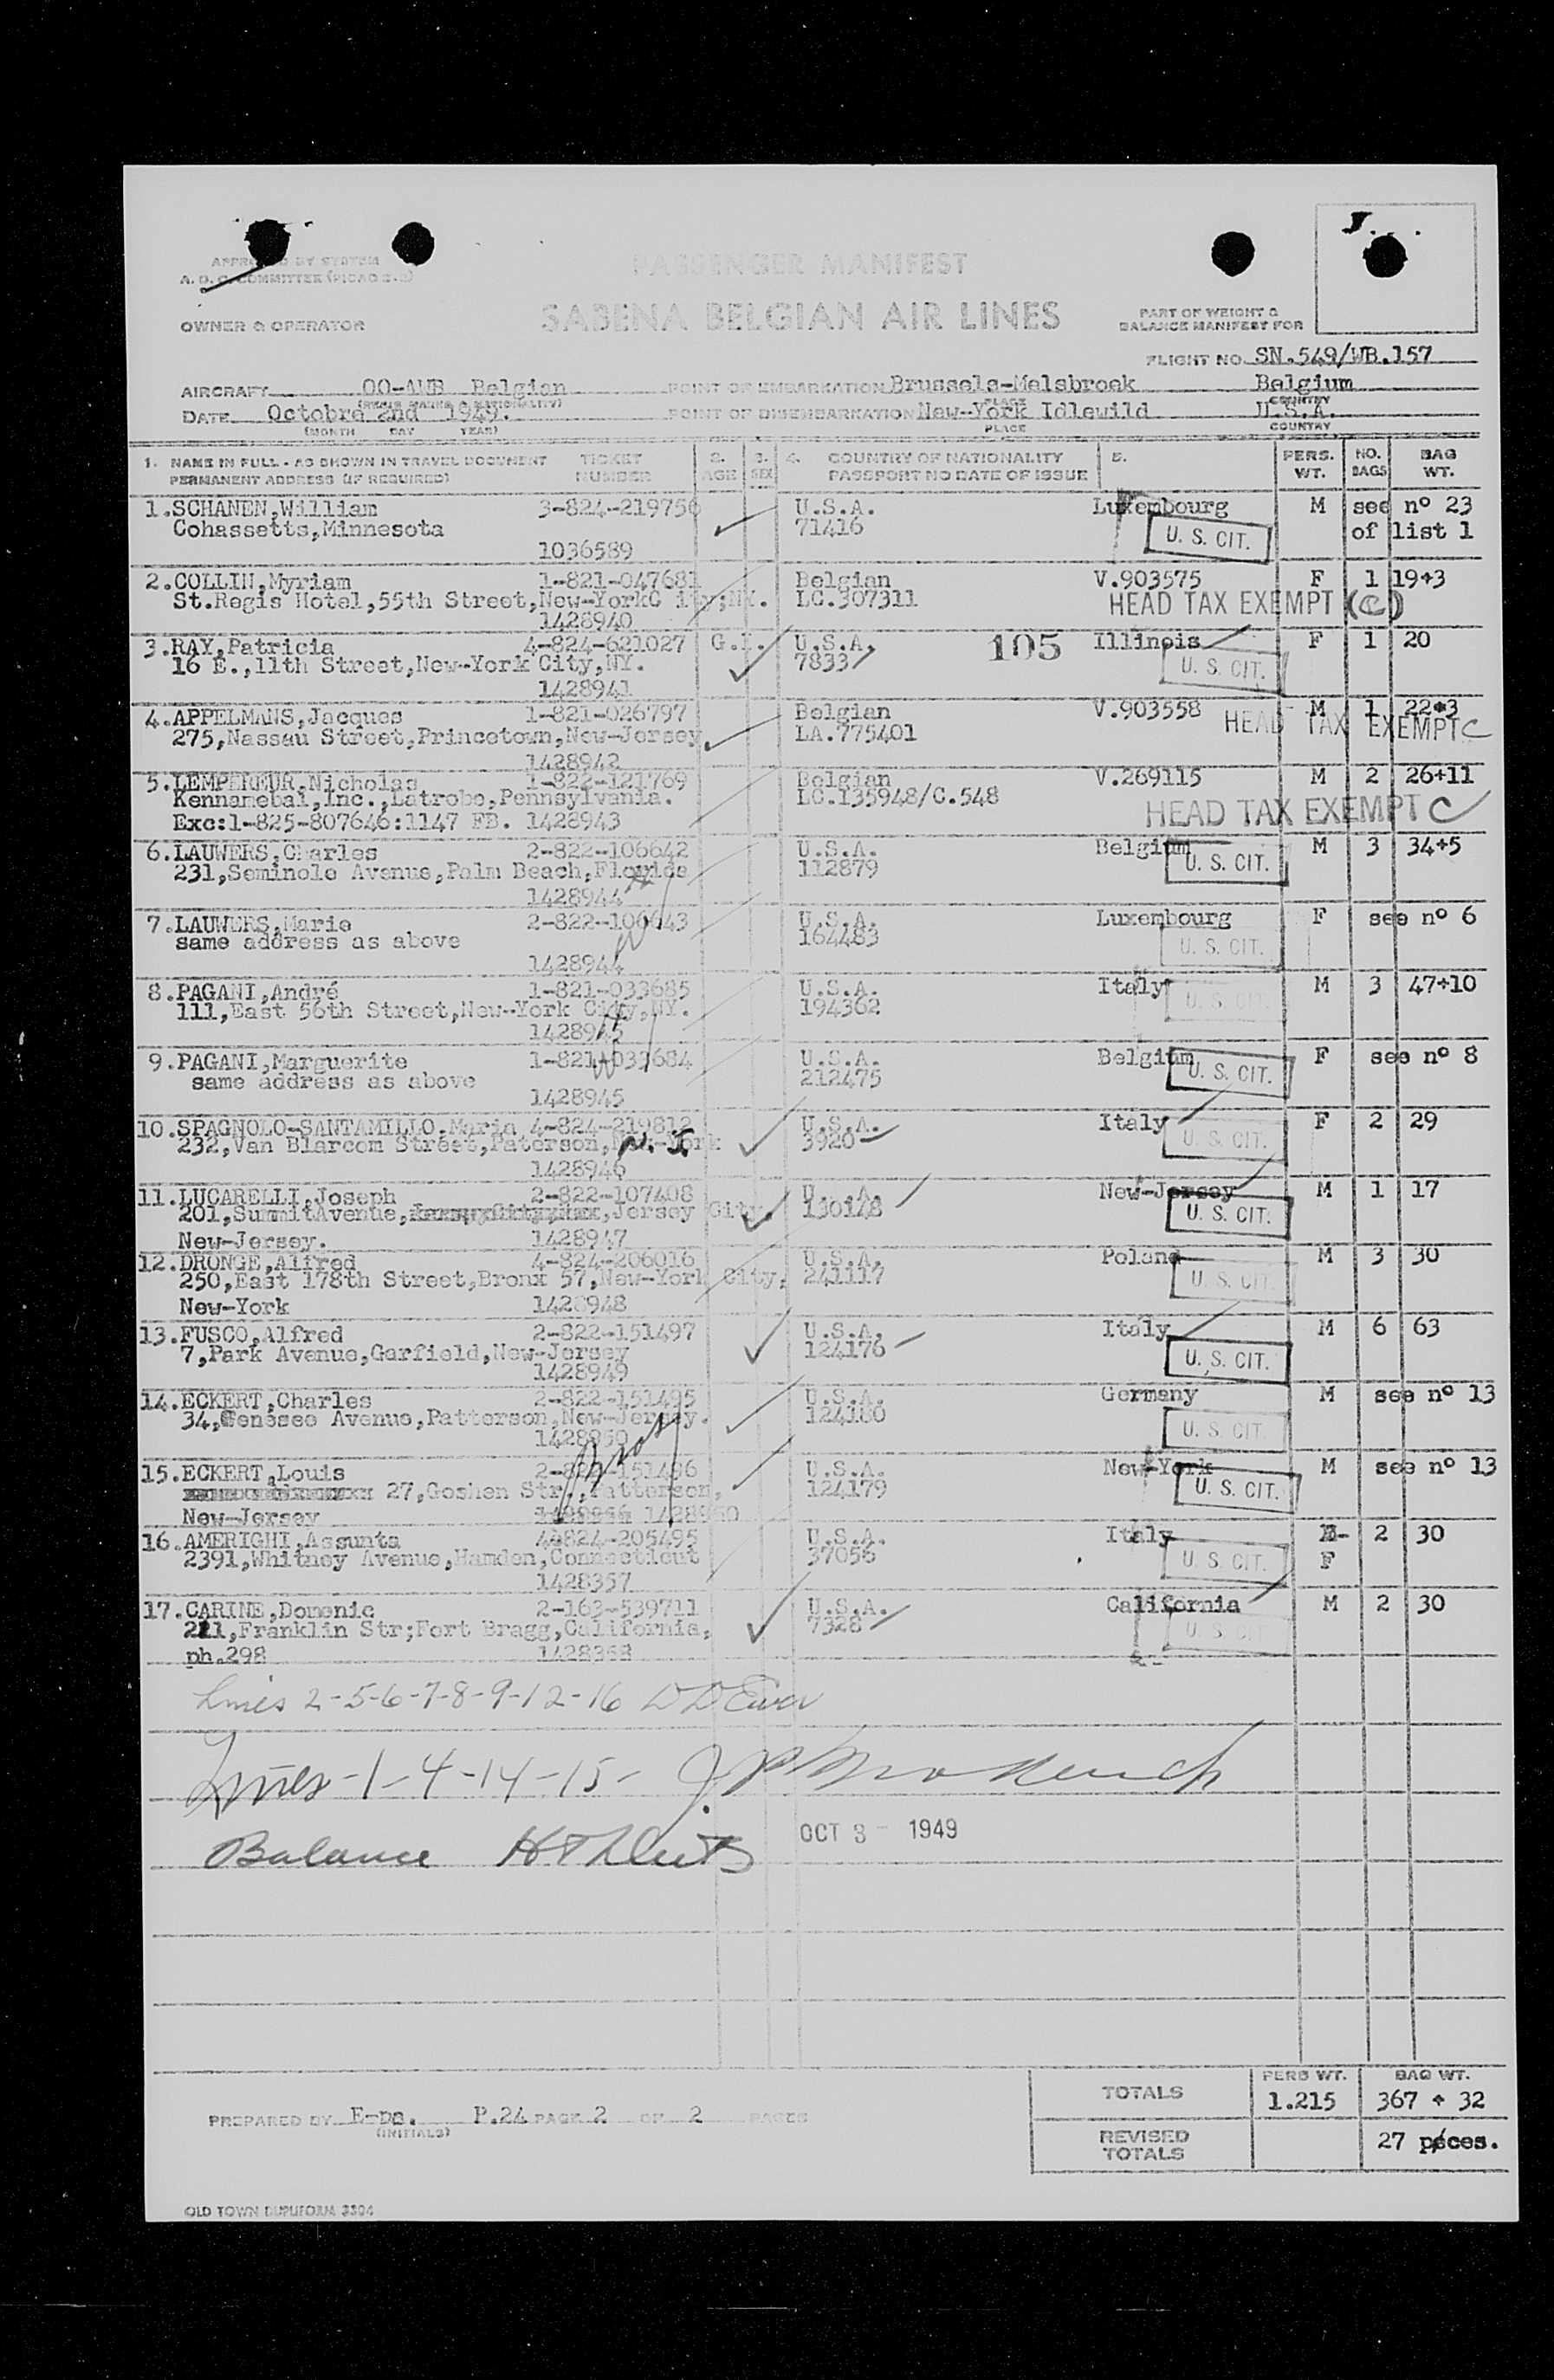 APPROVED BY SYSTEM
A. D. C. COMMITTEE (PICAO 2.2)
PASSENGER MANIFEST
SABENA BELGIAN AIR LINES
OWNER & OPERATOR
PART OF WEIGHT &
BALANCE MANIFEST FOR
FLIGHT NO. SN.549/WB.157
AIRCRAFT OO-AWB Belgian POINT OF EMBARKATION Brussels-Melsbroek Belgium
(REGIS MARKS & NATIONALITY) PLACE COUNTRY
DATE Octobre 2nd 1949. POINT OF DISEMBARKATION New-York Idlewild U.S.A.
(MONTH DAY YEAR) PLACE COUNTRY
1. NAME IN FULL - AS SHOWN IN TRAVEL DOCUMENT TICKET 2. 3. 4. COUNTRY OF NATIONALITY 5. PERS. NO. BAG
PERMANENT ADDRESS (IF REQUIRED) NUMBER AGE SEX PASSPORT NO DATE OF ISSUE WT. BAGS WT.
1.SCHANEN,William 3-824-219756 U.S.A. Luxembourg M see nº 23
Cohassetts,Minnesota 71416 U. S. CIT. of list 1
1036589
2.COLLIN,Myriam 1-821-047681 Belgian V.903575 F 1 19+3
St.Regis Hotel,55th Street,New-YorkC ity;NY. LC.307311 HEAD TAX EXEMPT (C)
1428940
3.RAY,Patricia 4-824-621027 G.I. U.S.A. 105 Illinois F 1 20
16 E.,11th Street,New-York City,NY. 7833 U. S. CIT.
1428941
4.APPELMANS,Jacques 1-821-026797 Belgian V.903558 M 1 22+3
275,Nassau Street,Princetown,New-Jersey LA.775401 HEAD TAX EXEMPT C
1428942
5.LEMPEREUR,Nicholas 1-822-121769 Belgian V.269115 M 2 26+11
Kennametal,Inc.,Latrobe,Pennsylvania. LC.135948/C.548
Exc:1-825-807646:1147 FB. 1428943 HEAD TAX EXEMPT C
6.LAUWERS,Charles 2-822-106642 U.S.A. Belgium M 3 34+5
231,Seminole Avenue,Palm Beach,Floride 112879 U. S. CIT.
1428944
7.LAUWERS,Marie 2-822-106643 U.S.A. Luxembourg F see nº 6
same address as above 164483 U. S. CIT.
1428944
8.PAGANI,André 1-821-033685 U.S.A. Italy M 3 47+10
111,East 56th Street,New-York City,NY. 194362 U. S. CIT.
1428945
9.PAGANI,Marguerite 1-821-033684 U.S.A. Belgium F see nº 8
same address as above 212475 U. S. CIT.
1428945
10.SPAGNOLO-SANTAMILLO,Maria 4-824-219812 U.S.A. Italy F 2 29
232,Van Blarcom Street,Paterson,New-York N. J. 3920 U. S. CIT.
1428946
11.LUCARELLI,Joseph 2-822-107408 U.S.A. New-Jersey M 1 17
201,SummitAvenue,Jersey City. 130148 U. S. CIT.
New-Jersey. 1428947
12.DRONGE,Alfred 4-824-206016 U.S.A. Poland M 3 30
250,East 178th Street,Bronx 57,New-York City, 241117 U. S. CIT.
New-York 1428948
13.FUSCO,Alfred 2-822-151497 U.S.A. Italy M 6 63
7,Park Avenue,Garfield,New-Jersey 124176 U. S. CIT.
1428949
14.ECKERT,Charles 2-822-151495 U.S.A. Germany M see nº 13
34,Genesee Avenue,Patterson,New-Jersey. 124180 U. S. CIT.
1428950
15.ECKERT,Louis 2-822-151496 U.S.A. New-York M see nº 13
27,Goshen Str.,Patterson, 124179 U. S. CIT.
New-Jersey 1428950
16.AMERIGHI,Assunta 4-824-205495 U.S.A. Italy 2 30
2391,Whitney Avenue,Hamden,Connecticut 37056 U. S. CIT. F
1428357
17.CARINE,Domenic 2-163-539711 U.S.A. California M 2 30
221,Franklin Str;Fort Bragg,California, 7328 U. S. CIT.
ph.298 1428358
Lines 2-5-6-7-8-9-12-16
Lines-1-4-14-15-
OCT 3 - 1949
Balance
TOTALS PERS WT. 1.215 BAG WT. 367 + 32
PREPARED BY E-pe. P.24 PAGE 2 OF 2 PAGES
(INITIALS)
REVISED TOTALS 27 pèces.
OLD TOWN DUPLIFORM 3304